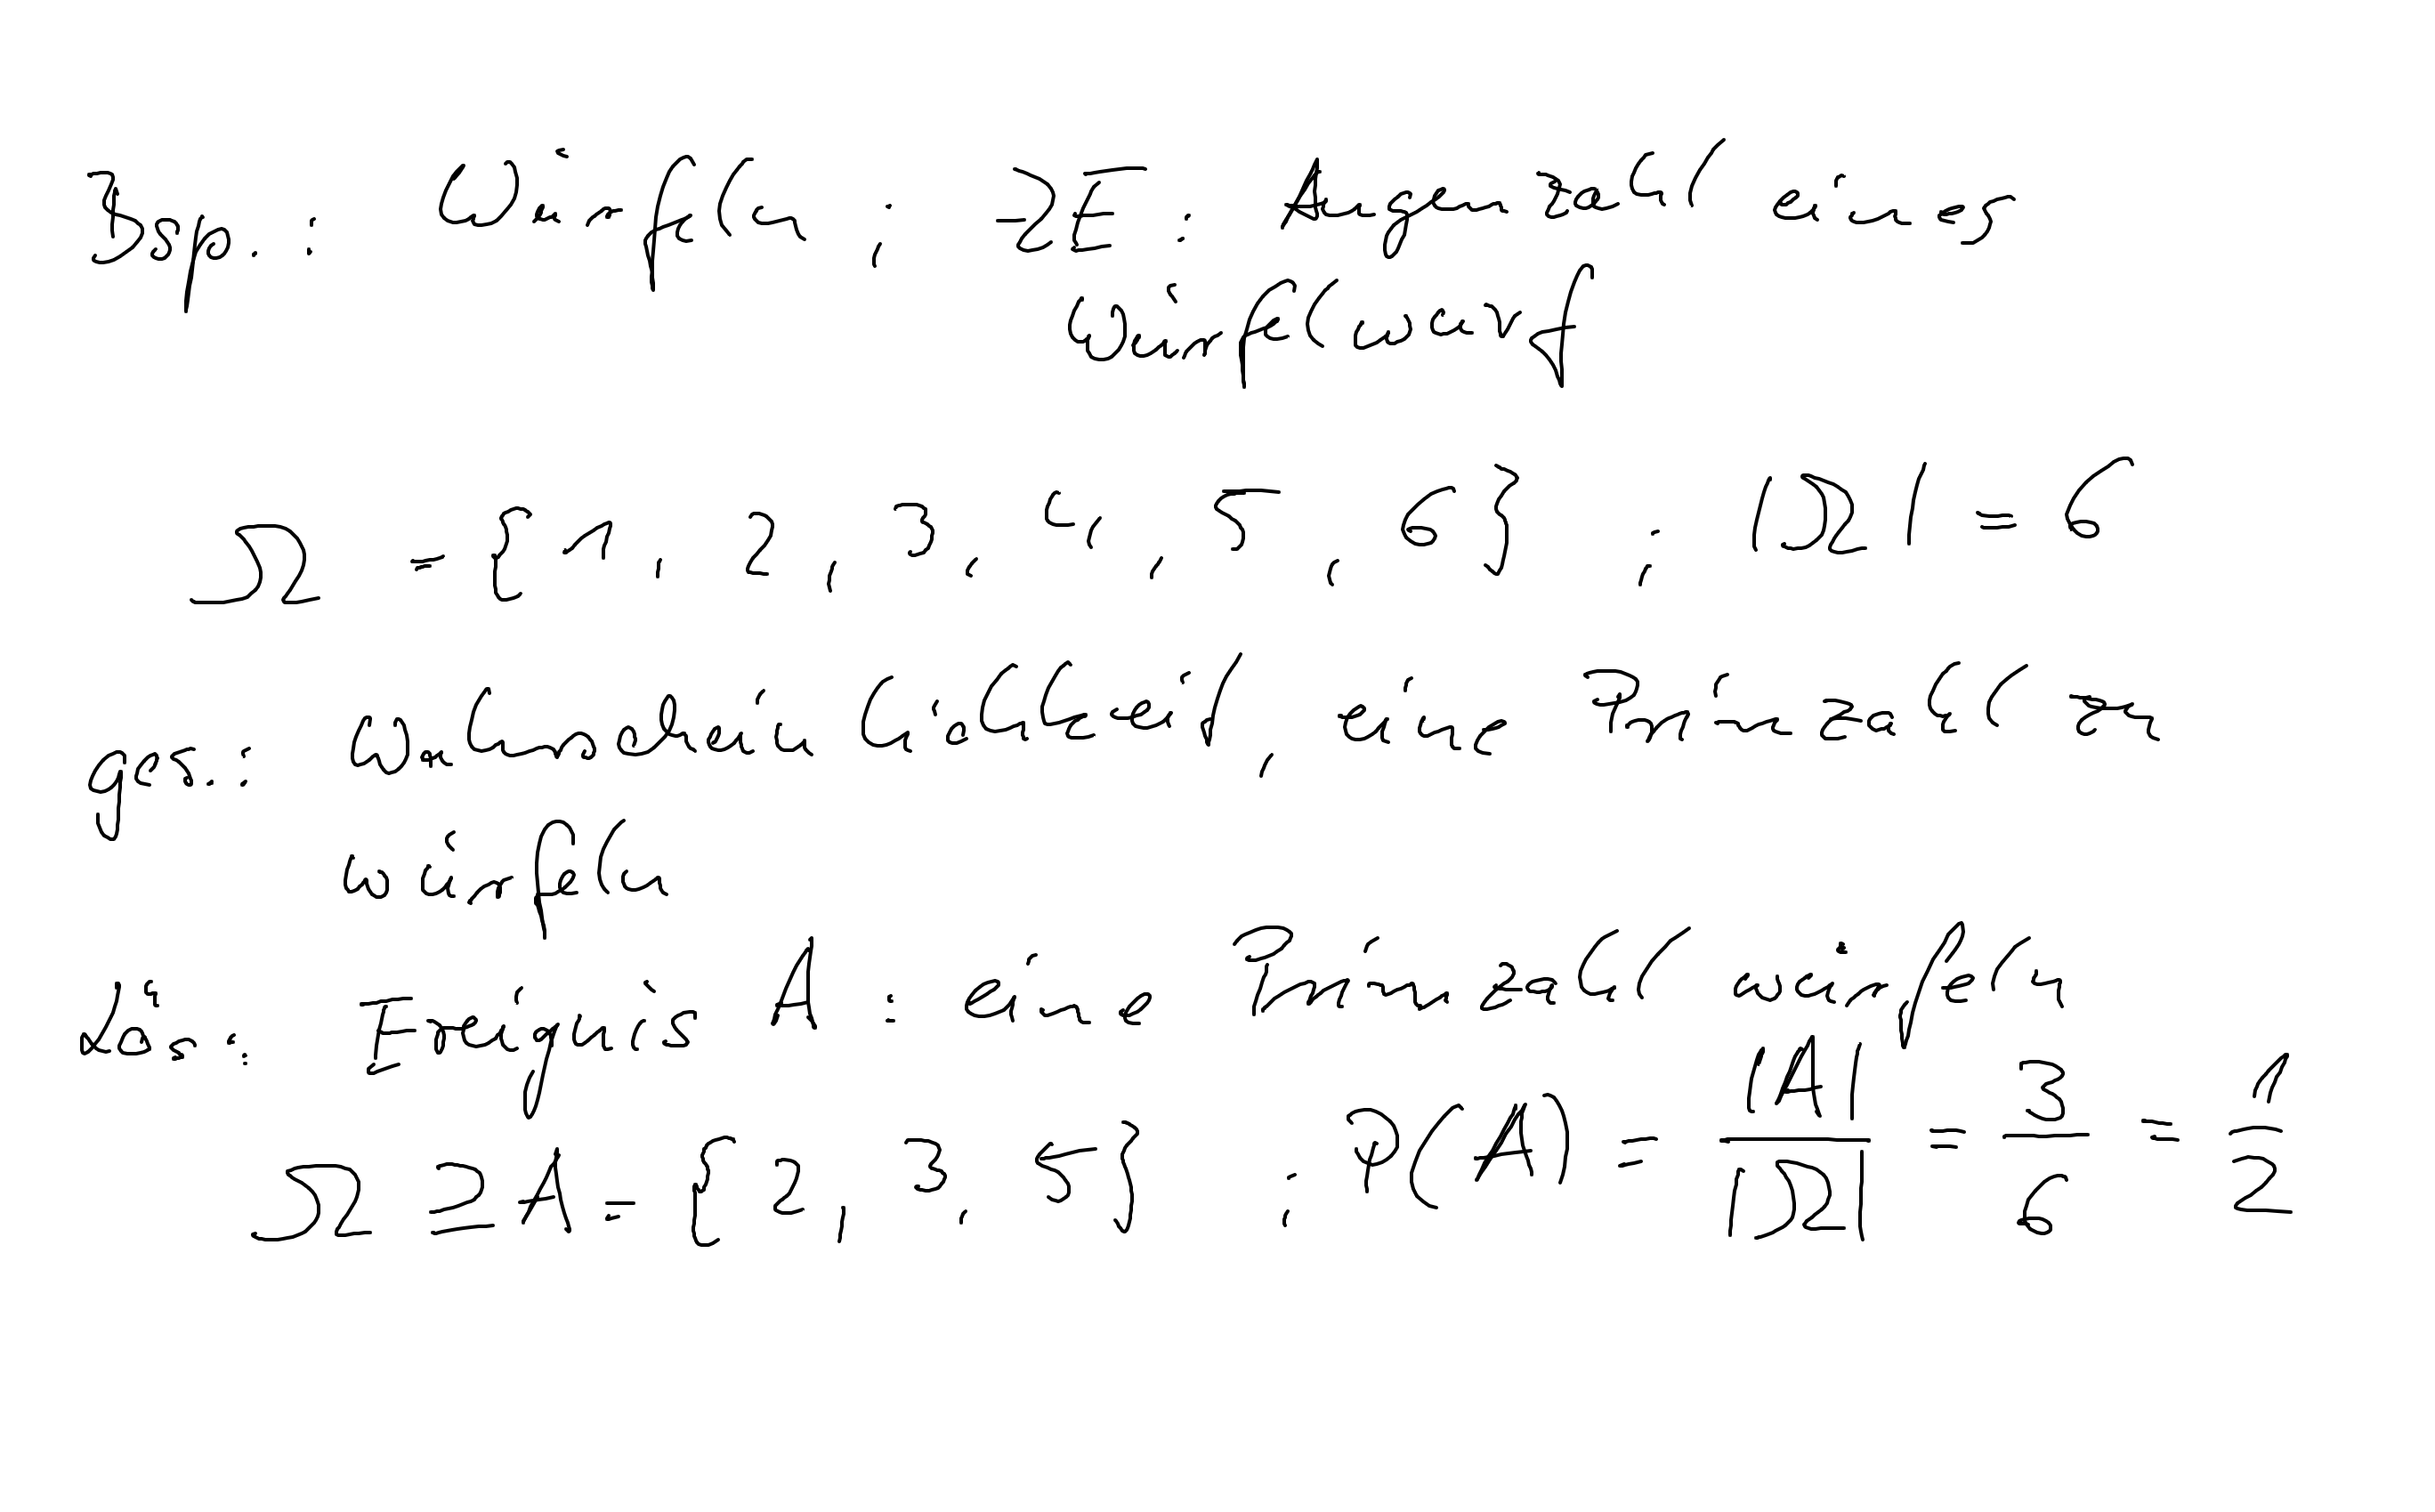 Bsp.: Würfeln ; ZE: Augenzahl eines
Würfelwurf
Ω = {1, 2, 3, 4, 5, 6} ; |Ω| = 6
ges.: Wahrscheinlichkeit, eine Primzahl zu
würfeln
Lös.: Ereignis A: eine Primzahl würfeln
Ω ⊇ A = {2, 3, 5} ; P(A) = |A|/|Ω| = 3/6 = 1/2